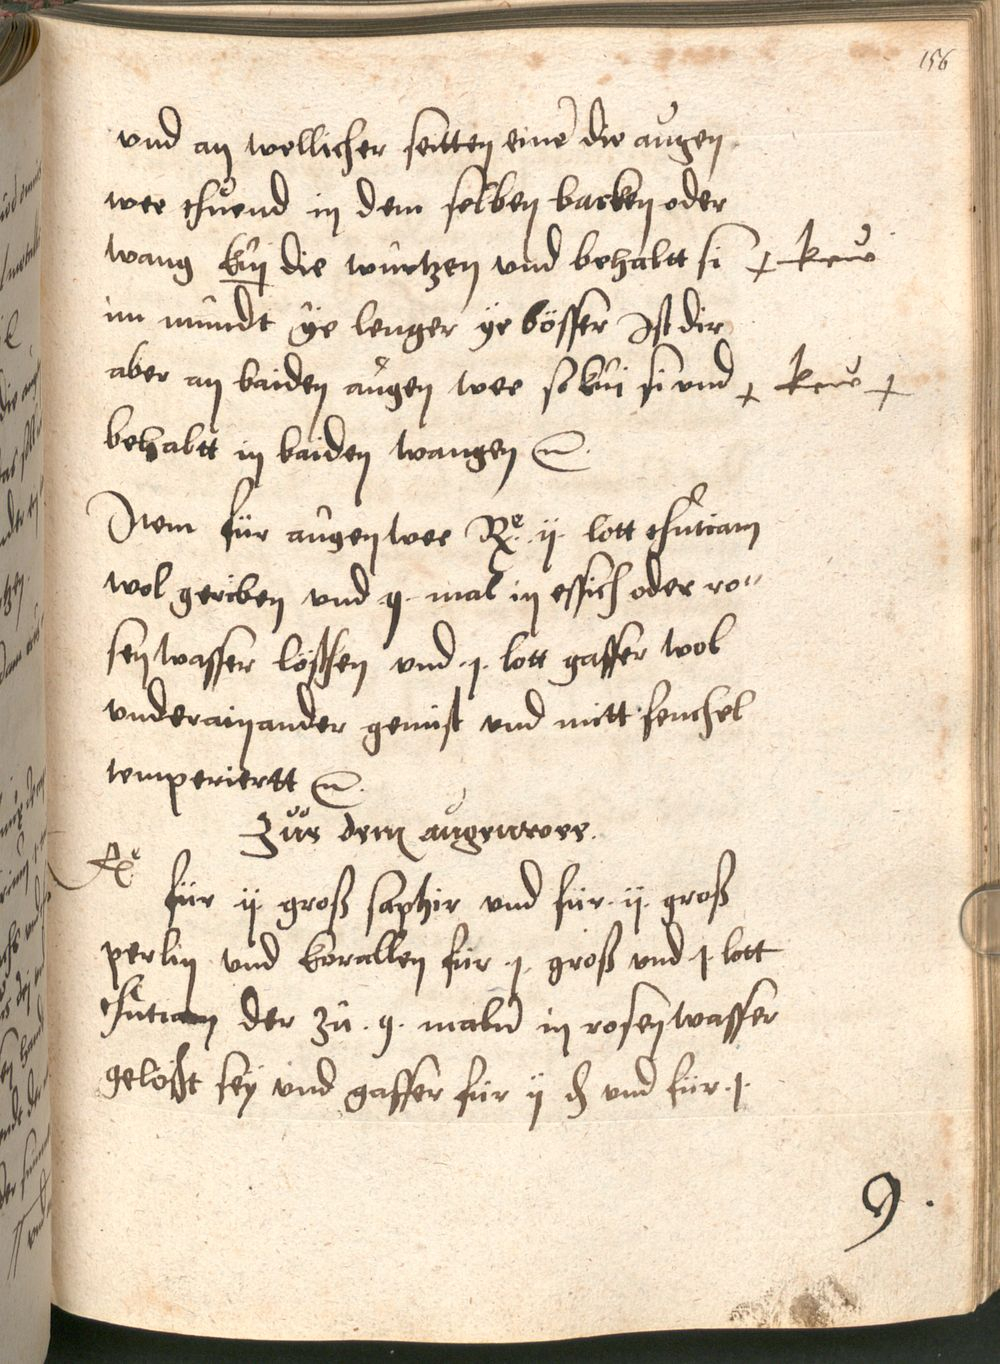 156
vnd an wellicher seitten eine die augen
wee thuend in dem selben backen oder
wang kuij die wurtzen vnd behaltt si + kew
im mundt ye lenger ye bösser Ist dir
aber an baiden augen wee so kui si vnd + kew +
behaltt in baiden wangen
Item für augen wee Rx. ij. lott thutiam
wol geriben vnd 9. mal in essich oder ro"
senwasser löschen vnd .j. lott gaffer wol
vnderainander gemist vnd mitt fenchel
temperiertt
Zue dem augenwee.
Rx
für ij. groß saphir vnd für .ij. groß
perlin vnd korallen für .j. groß vnd j. lott
thutiam der zu .9. maln in rosenwasser
gelöst sey vnd gaffer für ij d vnd für .j.
9.